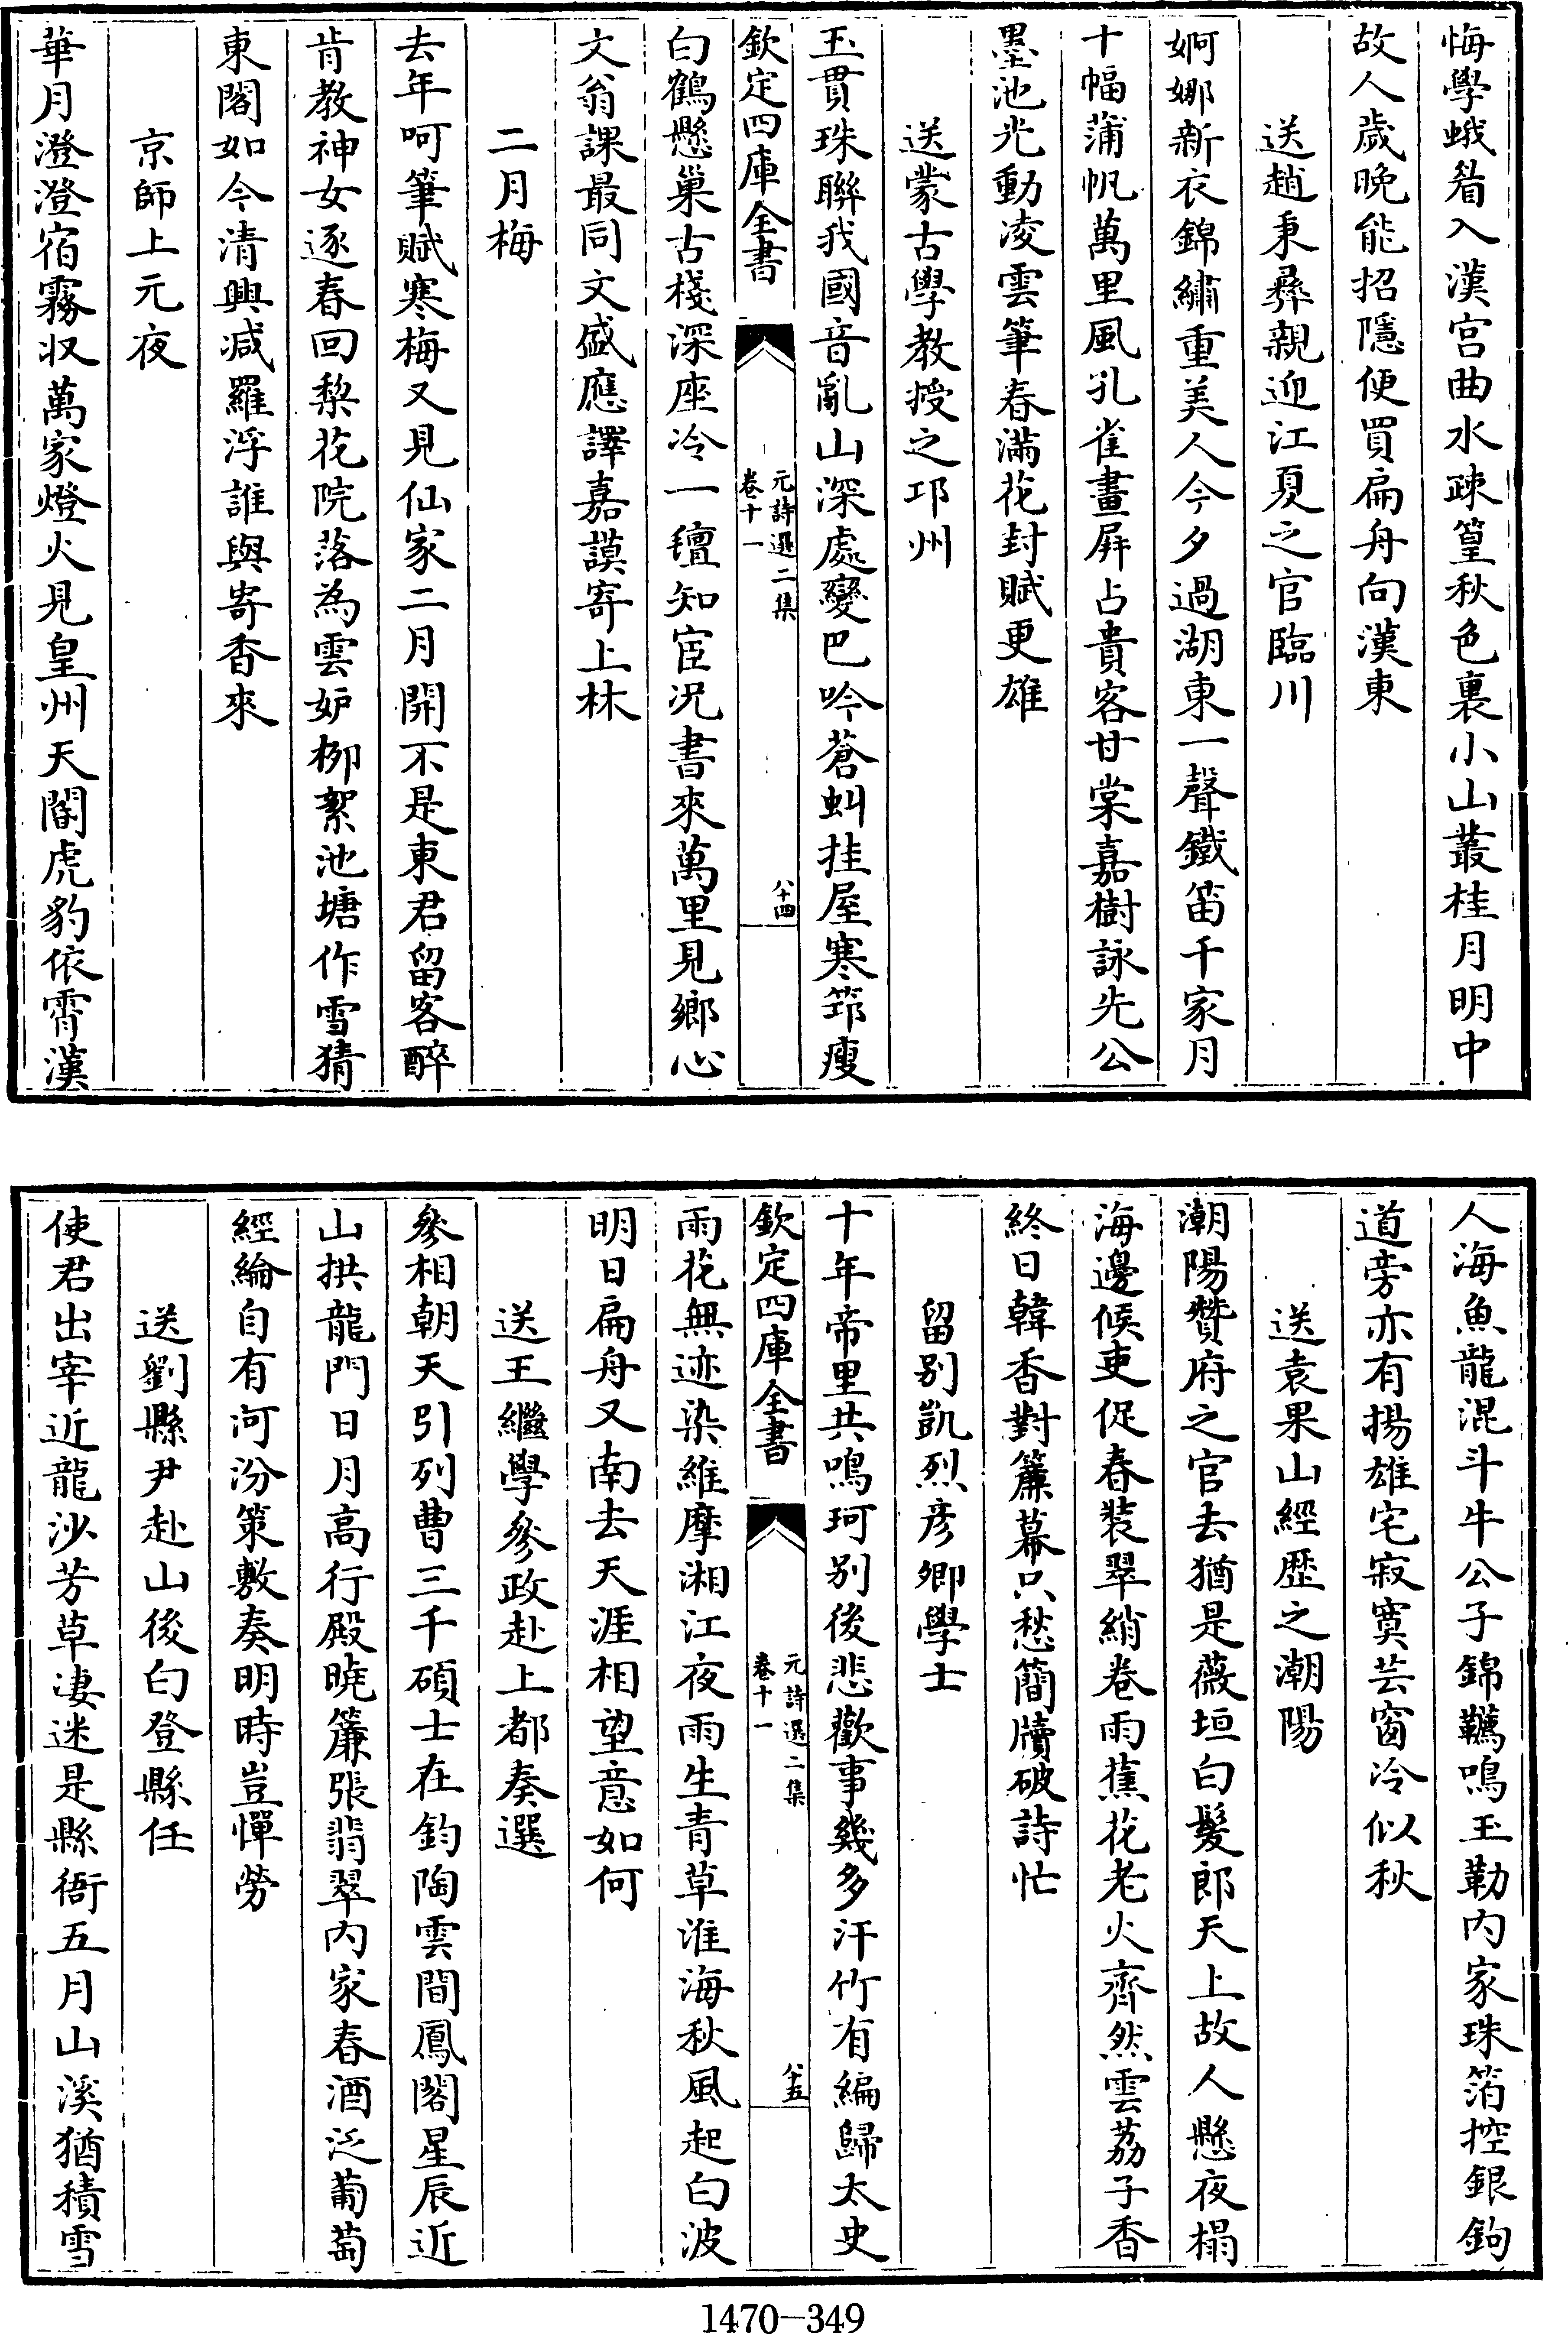 悔學蛾眉入漢宮曲水疎篁秋色裏小山叢桂月明中
故人歲晚能招隱便買扁舟向漢東
送趙秉彝親迎江夏之官臨川
婀娜新衣錦繡重美人今夕過湖東一聲鐵笛千家月
十幅蒲帆萬里風孔雀畫屏占貴客甘棠嘉樹詠先公
墨池光動凌雲筆春滿花封賦更雄
送蒙古學教授之邛州
玉貫珠聯我國音亂山深處變巴吟蒼虯挂屋寒筇瘦
欽定四庫全書
元詩選二集
卷十一
八十四
白鶴懸巢古棧深座冷一氊知宦況書來萬里見鄉心
文翁課最同文盛應譯嘉謨寄上林
二月梅
去年呵筆賦寒梅又見仙家二月開不是東君留客醉
肯教神女逐春回梨花院落為雲妒柳絮池塘作雪猜
東閣如今清興减羅浮誰與寄香來
京師上元夜
華月澄澄宿霧収萬家燈火見皇州天閽虎豹依霄漢
人海魚龍混斗牛公子錦韉鳴玉勒內家珠箔控銀鉤
道旁亦有揚雄宅寂寞芸窗冷似秋
送袁果山經歷之潮陽
潮陽贊府之官去猶是薇垣白髮郎天上故人懸夜榻
海邊候吏促春裝翠綃卷雨蕉花老火齊然雲荔子香
終日韓香對簾幕只愁簡牘破詩忙
留別凱烈彥卿學士
十年帝里共鳴珂別後悲歡事幾多汗竹有編歸太史
欽定四庫全書
元詩選二集
卷十一
八十五
雨花無迹染維摩湘江夜雨生青草淮海秋風起白波
明日扁舟又南去天涯相望意如何
送王繼學參政赴上都奏選
參相朝天引列曹三千碩士在鈞陶雲間鳳閣星辰近
山拱龍門日月高行殿曉簾張翡翠內家春酒泛葡萄
經綸自有河汾策敷奏明時豈憚勞
送劉縣尹赴山後白登縣任
使君出宰近龍沙芳草淒迷是縣衙五月山溪猶積雪
1470-349